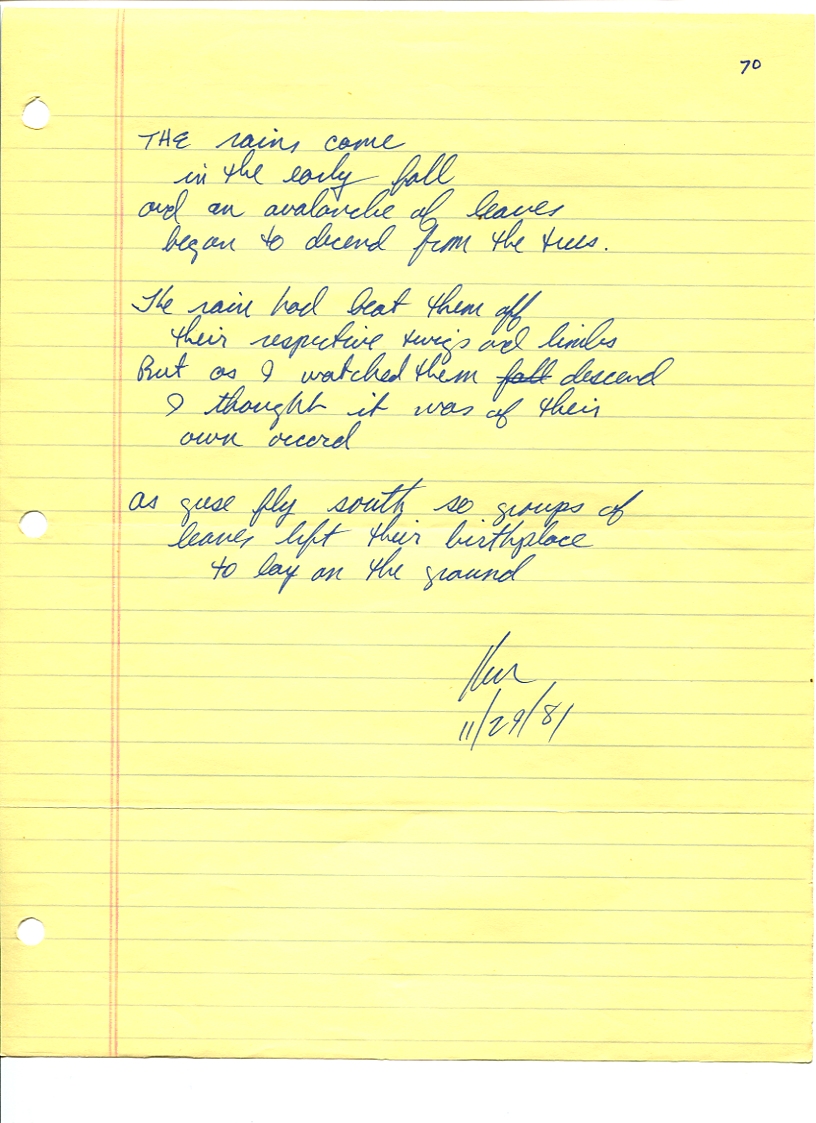 70
THE rains come
in the early fall
and an avalanche of leaves
began to decend from the trees.
The rain had beat them off
their respective twigs and limbs
But as I watched them fall descend
I thought it was of their
own accord
as geese fly south so groups of
leaves left their birthplace
to lay on the ground
11/29/81